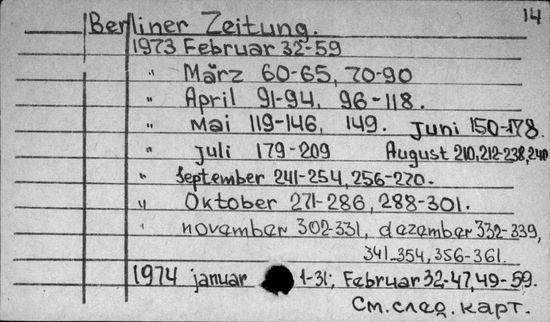 14
Berliner Zeitung.
1973 Februar 32-59
" März 60-65, 70-90
" April 91-94, 96-118.
" Mai 119-146, 149. Juni 150-178.
" Juli 179-209 August 210,212-238,240
" September 241-254,256-270.
" Oktober 271-286, 288-301.
" november 302-331, dezember 332-339,
341-354,356-361.
1974 januar 1-31; Februar 32-47,49-59.
См.след.карт.